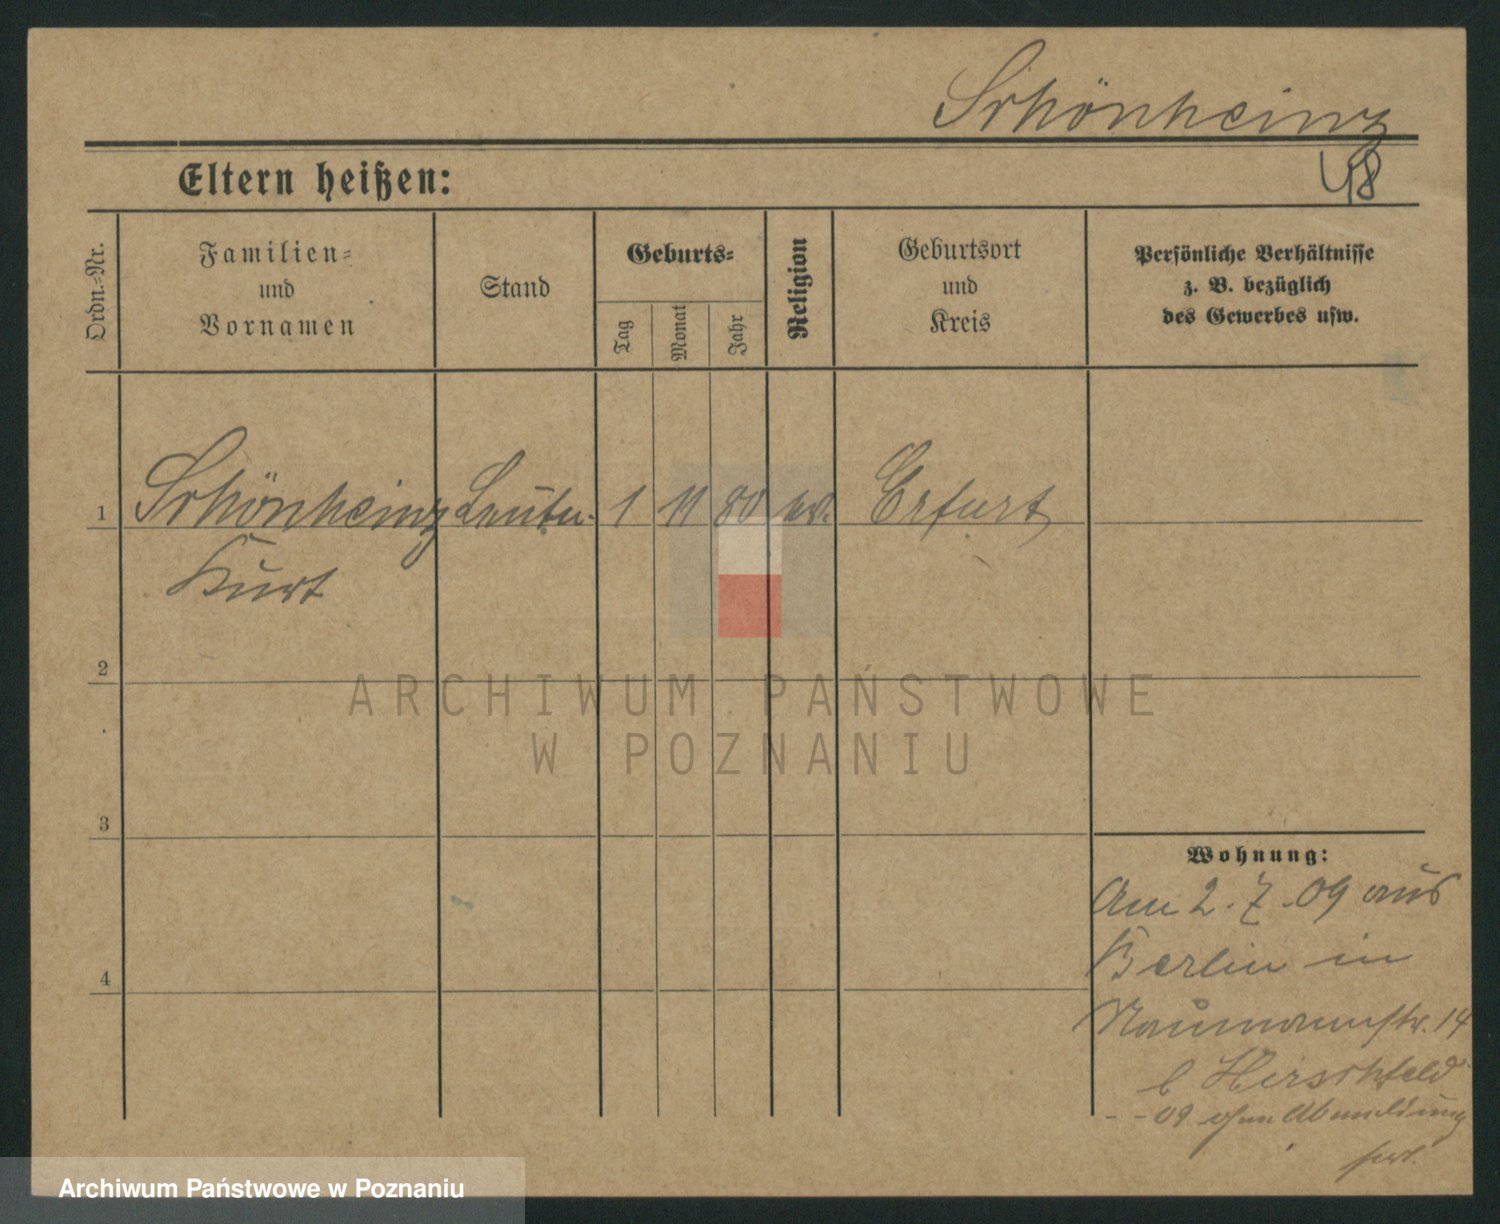 Schönheinz
48
Eltern heißen:
Ordn.-Nr.
Familien-
und
Vornamen
Stand
Geburts-
Tag
Monat
Jahr
Religion
Geburtsort
und
Kreis
Persönliche Verhältnisse
z. B. bezüglich
des Gewerbes usw.
1 Schönheinz Leutn. 1 11 80 ev. Erfurt
Kurt
2
3
4
Wohnung:
Am 2.7.09 aus
Berlin in
Naumannstr. 14
b Hirschfeld
- - 09 ohne Abmeldung
fort.
ARCHIWUM PAŃSTWOWE
W POZNANIU
Archiwum Państwowe w Poznaniu